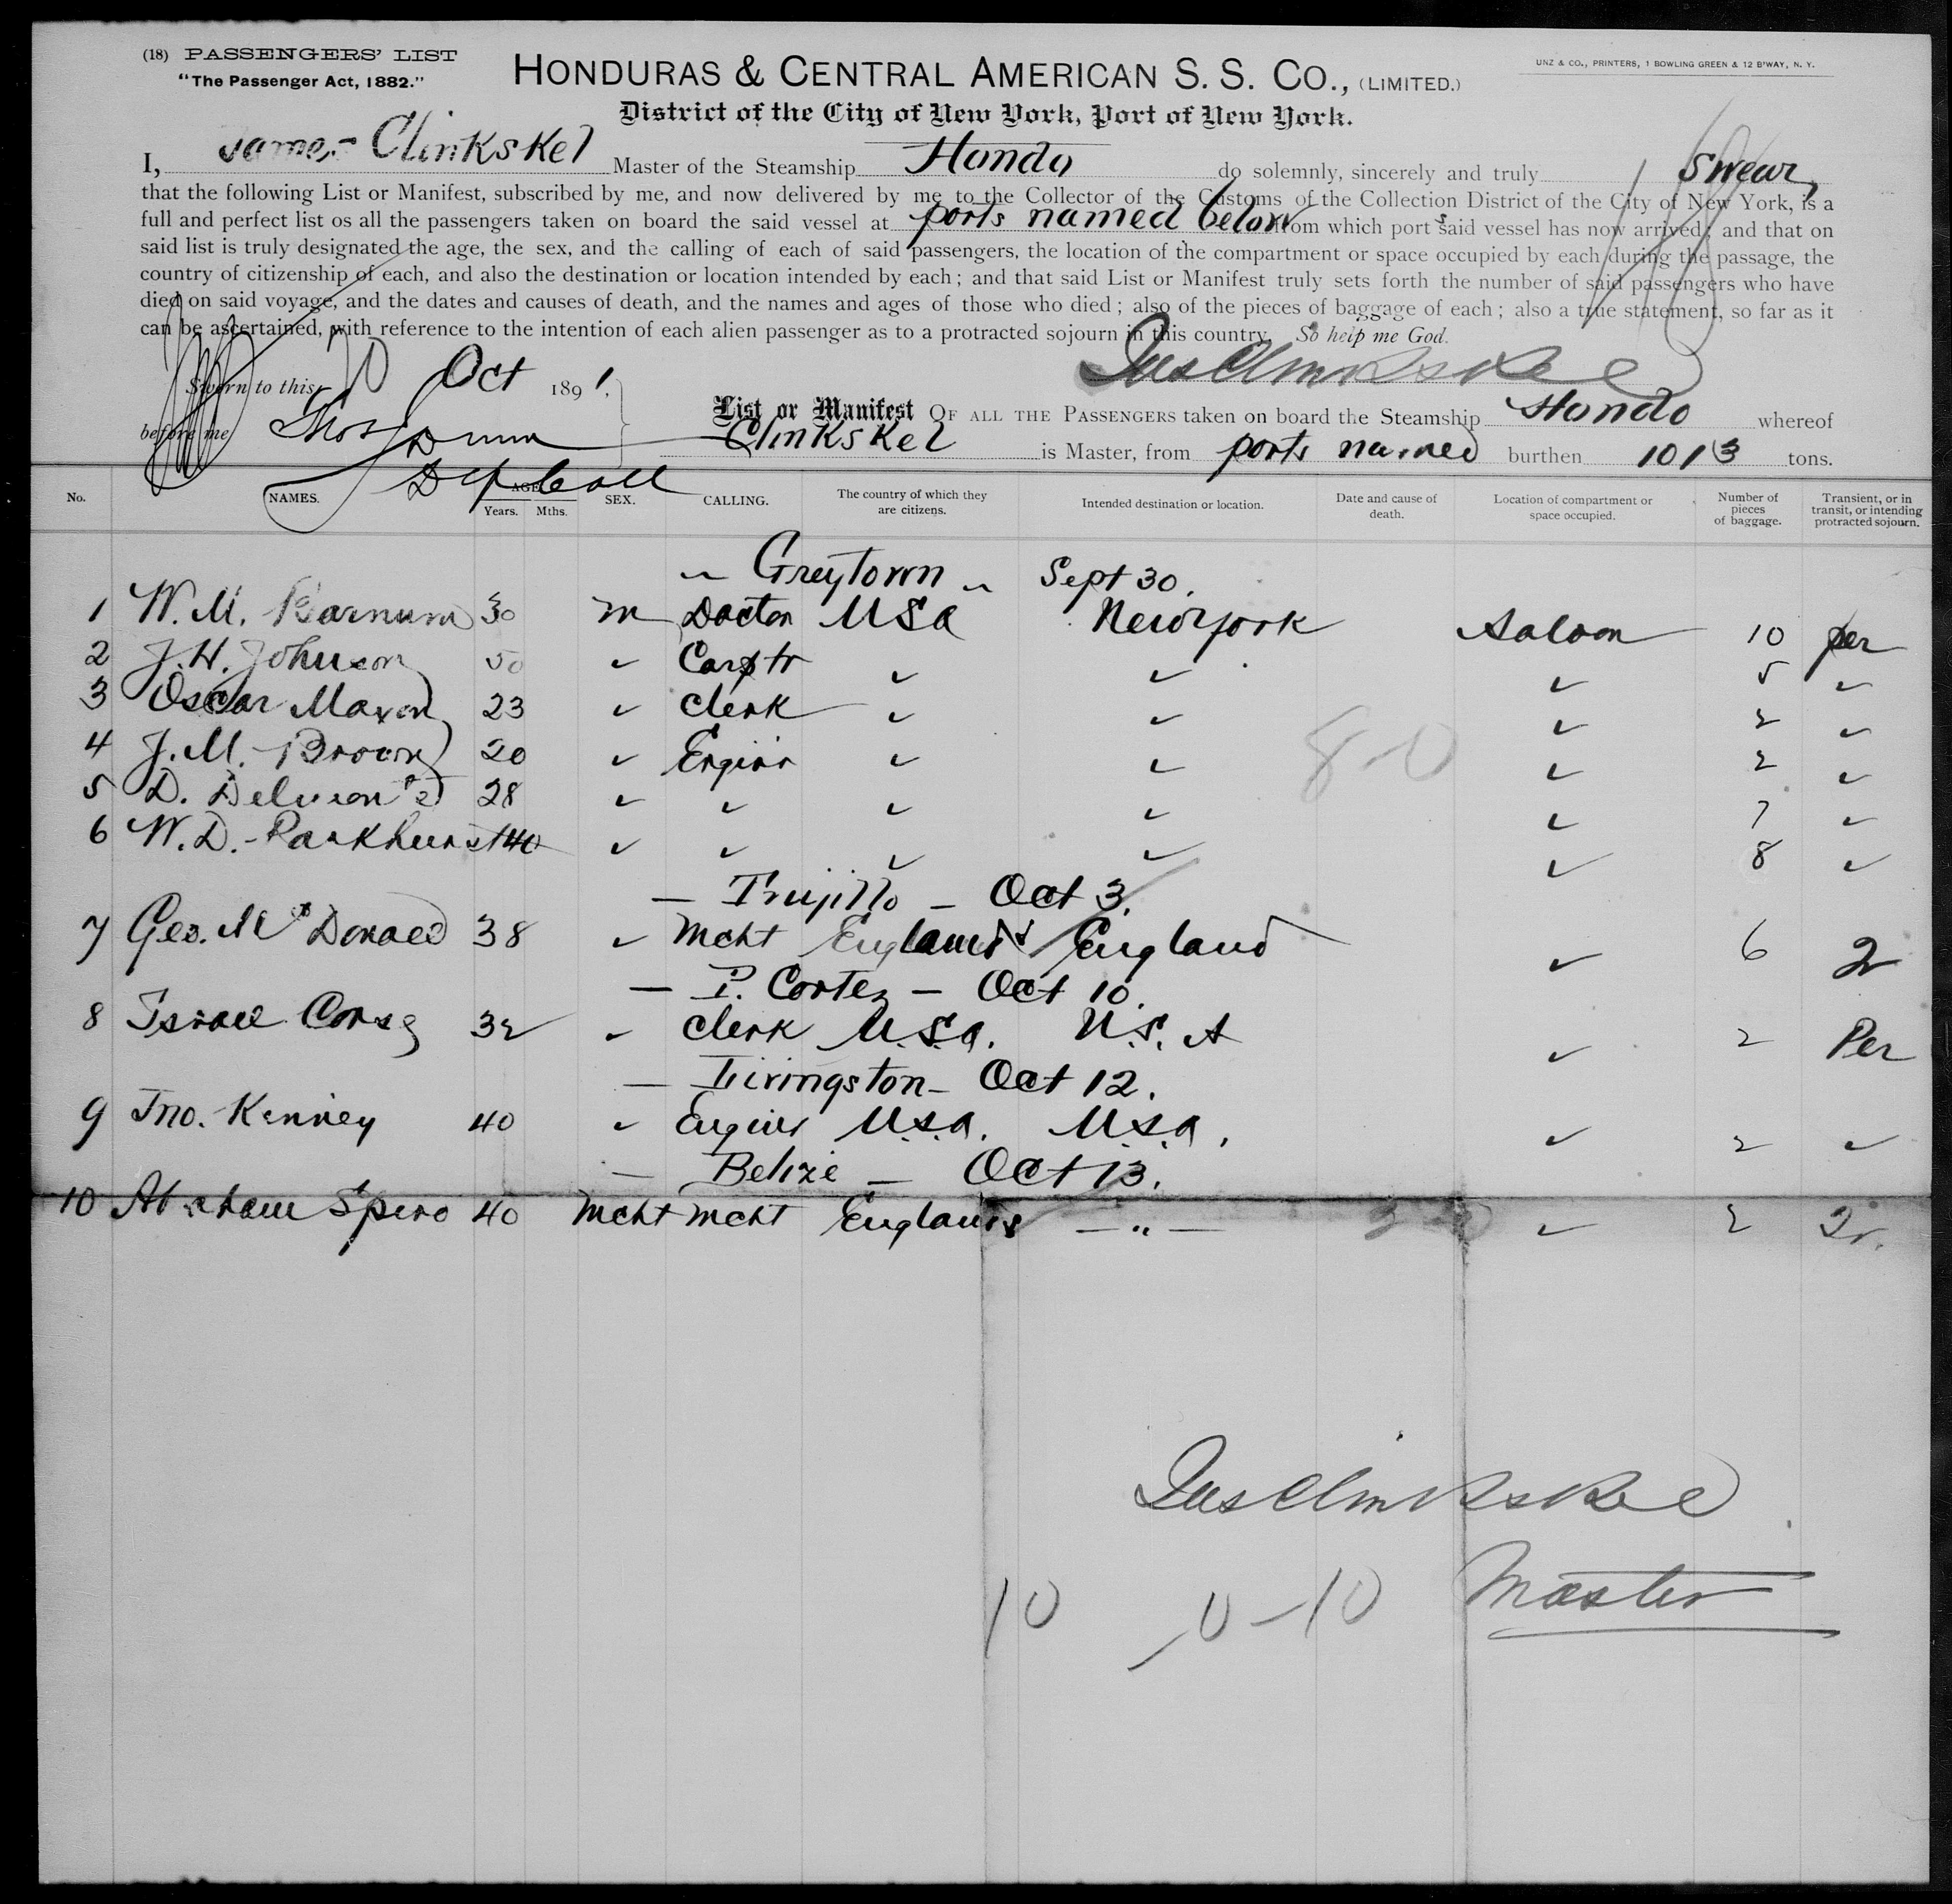 (18) PASSENGERS' LIST
"The Passenger Act, 1882."
HONDURAS & CENTRAL AMERICAN S. S. CO., (LIMITED.)
UNZ & CO., PRINTERS, 1 BOWLING GREEN & 12 B'WAY, N. Y.
District of the City of New York, Port of New York.
I, James Clinkskel Master of the Steamship Hondo do solemnly, sincerely and truly swear,
that the following List or Manifest, subscribed by me, and now delivered by me to the Collector of the Customs of the Collection District of the City of New York, is a
full and perfect list os all the passengers taken on board the said vessel at ports named below from which ports said vessel has now arrived; and that on
said list is truly designated the age, the sex, and the calling of each of said passengers, the location of the compartment or space occupied by each during the passage, the
country of citizenship of each, and also the destination or location intended by each; and that said List or Manifest truly sets forth the number of said passengers who have
died on said voyage, and the dates and causes of death, and the names and ages of those who died; also of the pieces of baggage of each; also a true statement, so far as it
can be ascertained, with reference to the intention of each alien passenger as to a protracted sojourn in this country. So help me God.
Jas Clinkskel
Sworn to this 20 Oct 1891.
before me Thos Dunn
Dep Coll
List or Manifest OF ALL THE PASSENGERS taken on board the Steamship Hondo whereof
Clinkskel is Master, from ports named burthen 1013 tons.
No. NAMES. AGE Years. Mths. SEX. CALLING. The country of which they are citizens. Intended destination or location. Date and cause of death. Location of compartment or space occupied. Number of pieces of baggage. Transient, or in transit, or intending protracted sojourn.
Greytown Sept 30.
1 W. M. Barnum 30 m Doctor USa New York Saloon 10 per
2 J. H. Johnson 50 ✓ Carptr ✓ ✓ ✓ 5 ✓
3 Oscar Maxon 23 ✓ Clerk ✓ ✓ ✓ 2 ✓
4 J. M. Brown 20 ✓ Enginr ✓ ✓ ✓ 2 ✓
5 D. 28 ✓ ✓ ✓ ✓ ✓ 7 ✓
6 W. D. Parkhurst 40 ✓ ✓ ✓ ✓ ✓ 8 ✓
80
— Trujillo — Oct 3.
7 Geo. McDonald 38 ✓ Mcht England England ✓ 6 2
— P. Cortez — Oct 10.
8 Israel 32 ✓ Clerk U.S.a. U.S. A ✓ 2 Per
— Livingston — Oct 12.
9 Jno. Kenney 40 ✓ Enginr U.S.a. U.S.a. ✓ 2 ✓
— Belize — Oct 13.
10 Abraham Spiro 40 Mcht Mcht England — " — ✓ 2 2
Jas Clinkskel
Master
10 0-10